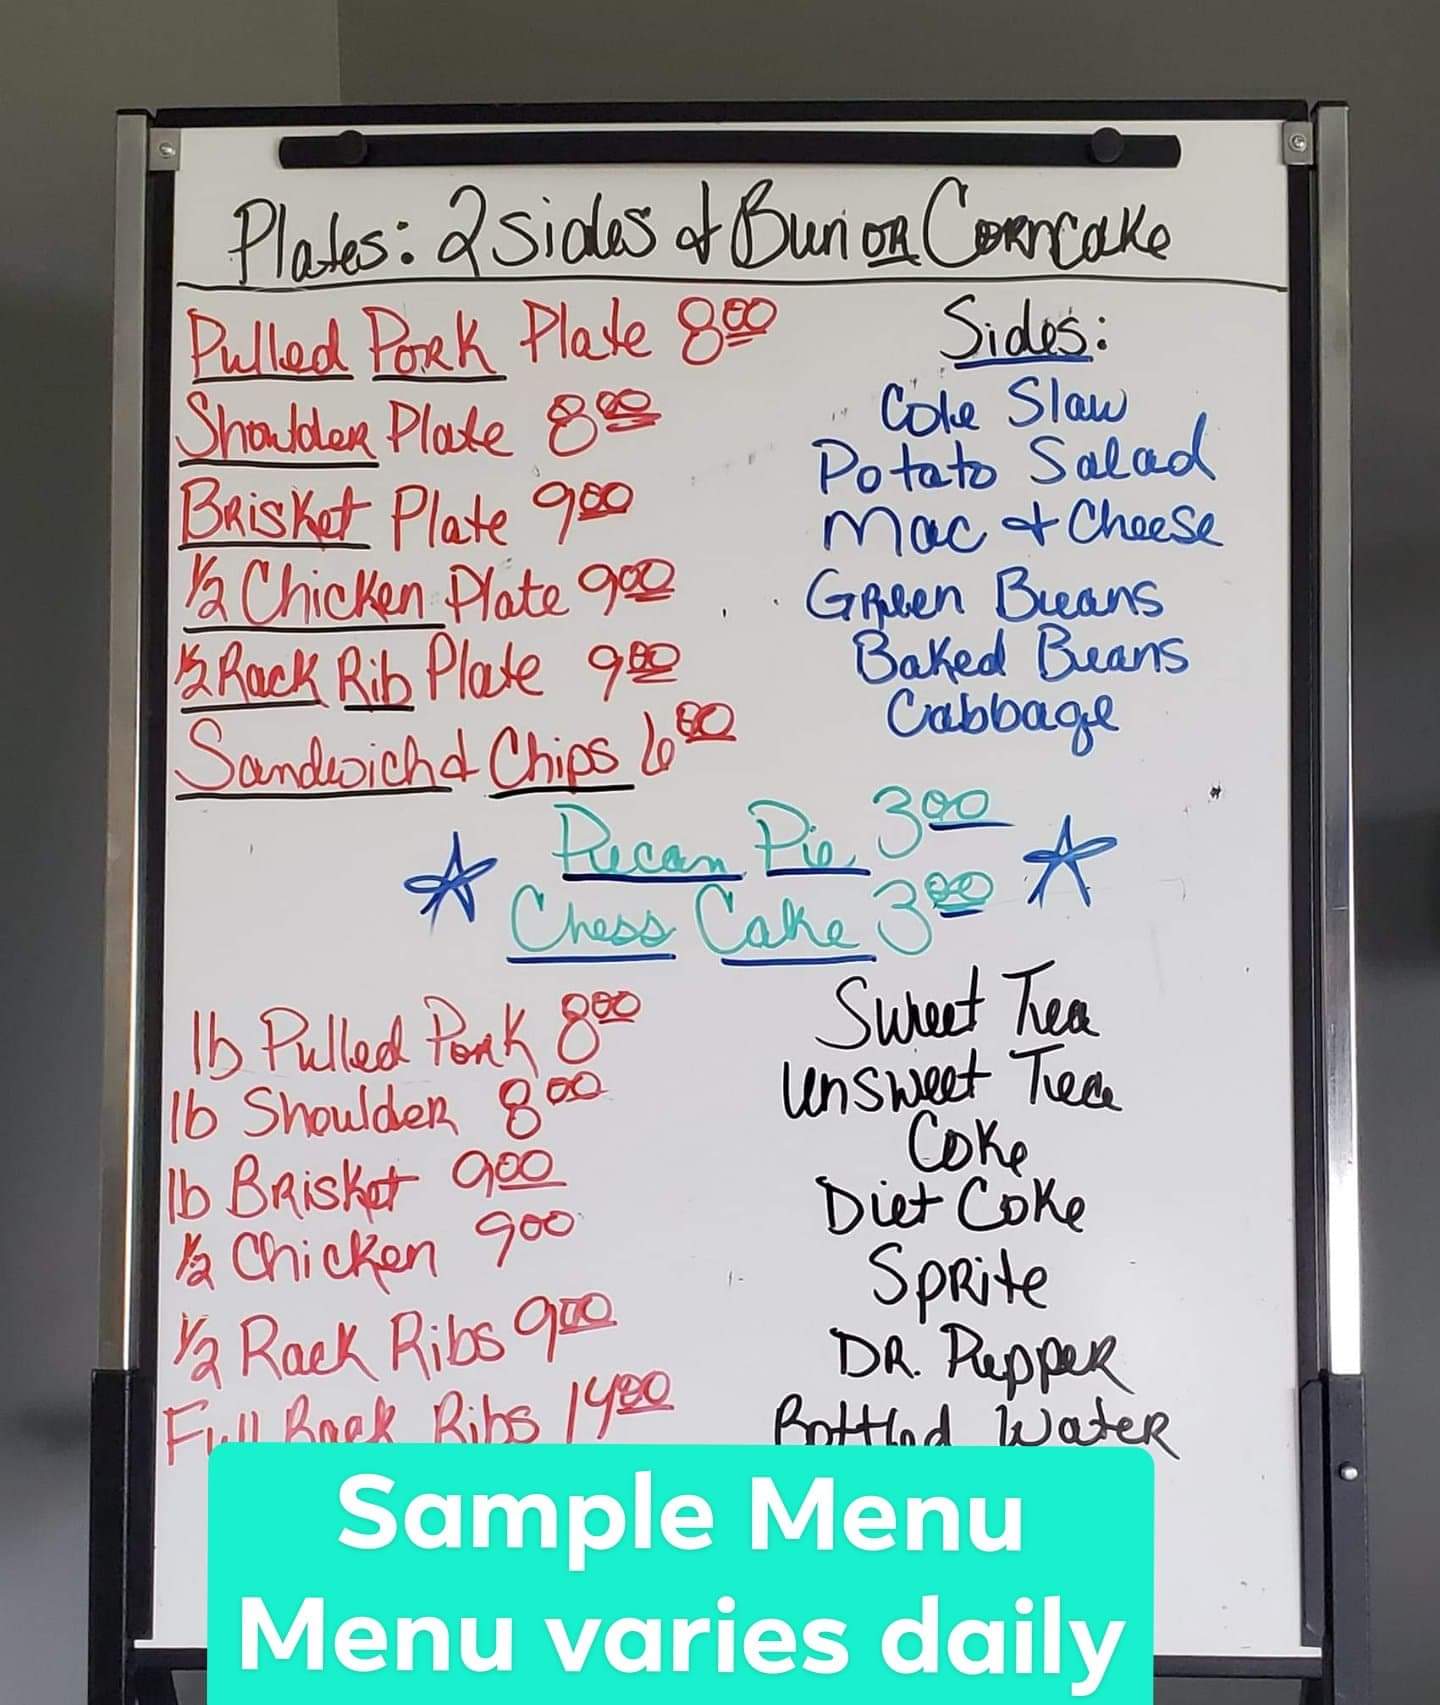 Plates: 2 Sides & Bun or Corncake
Pulled Pork Plate 8.00
Shoulder Plate 8.00
Brisket Plate 9.00
1/2 Chicken Plate 9.00
1/2 Rack Rib Plate 9.00
Sandwich & Chips 6.00
Sides:
Cole Slaw
Potato Salad
Mac & Cheese
Green Beans
Baked Beans
Cabbage
Pecan Pie 3.00
Chess Cake 3.00
lb Pulled Pork 8.00
lb Shoulder 8.00
lb Brisket 9.00
1/2 Chicken 9.00
1/2 Rack Ribs 9.00
Full Rack Ribs 14.00
Sweet Tea
Unsweet Tea
Coke
Diet Coke
Sprite
Dr. Pepper
Bottled Water
Sample Menu
Menu varies daily